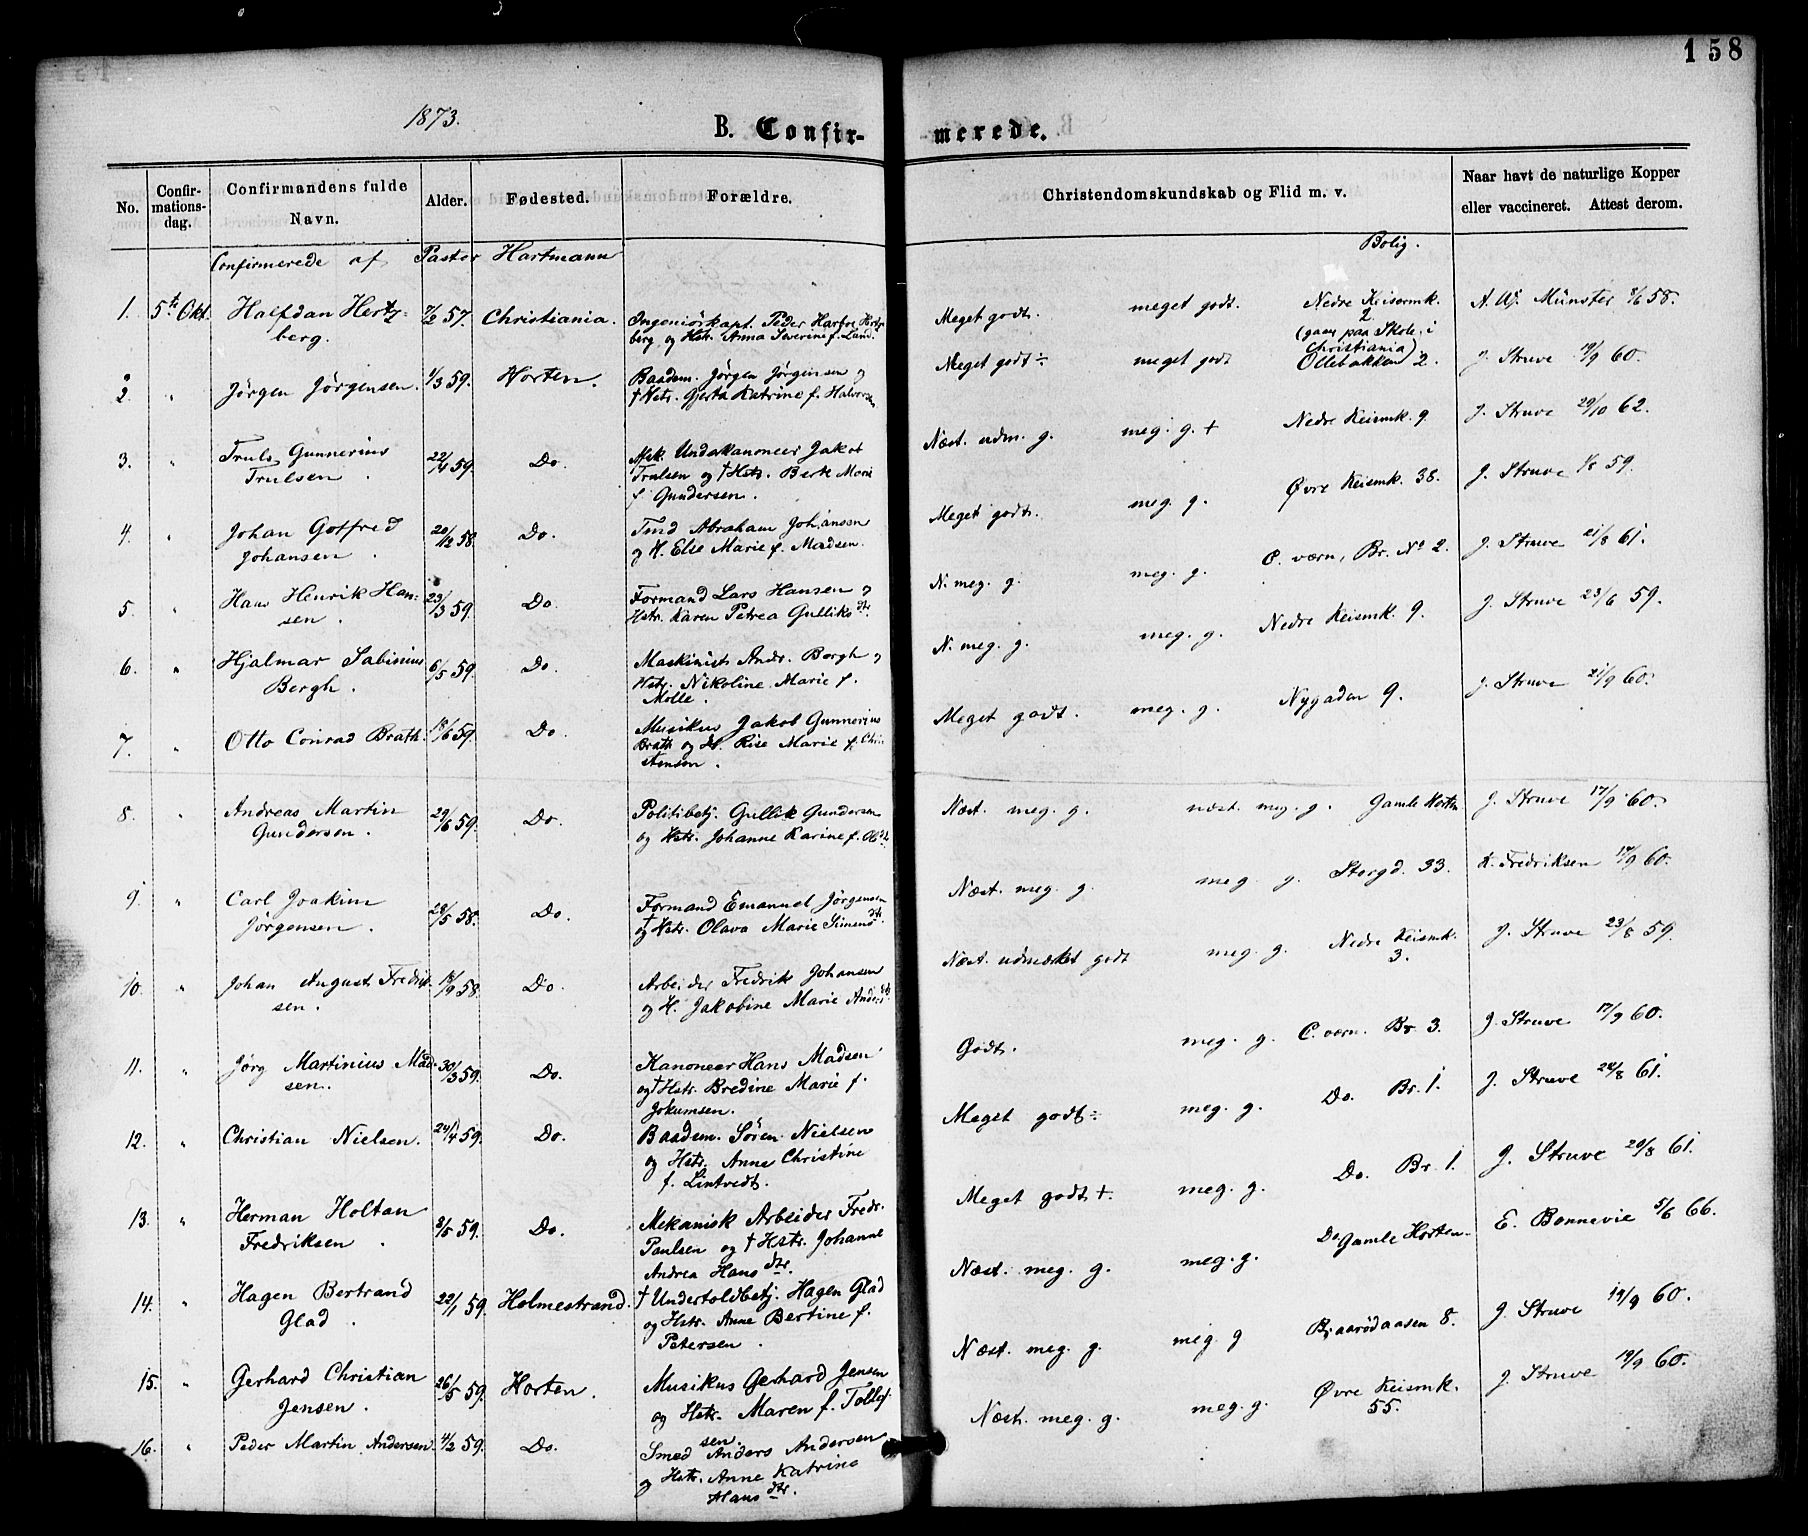 158
1873.
B. Confirmerede.
No. Confirmationsdag. Confirmandens fulde Navn. Alder. Fødested. Forældre. Christendomskundskab og Flid m. v. Naar havt de naturlige Kopper eller vaccineret. Attest derom.
Confirmerede af Pastor Hartmann
Bolig.
1. 5te Okt. Halfdan Hertz-
berg.
7/2 57. Christiania.
Ingeniørkapt. Peder Hertz-
berg og Hstr. Anna Severine f. Lund.
Meget godt. meget godt. Nedre Keisermk.
2
(gaar paa Skole i
Christiania)
A. W. Münster 8/6 58.
2. " Jørgen Jørgensen. 1/3 59. Horten.
Baadsm. Jørgen Jørgensen og
† Hstr. Gjerta Katrine f. Halvorsen
Meget godt ÷ meget godt Ollebakken 2. J. Struve 19/9 60.
3. " Truls Gunnerius
Trulsen.
22/4 59. Do.
Msk. Underkanoneer Jakob
Trulsen og † Hstr. Berte Marie
f. Gundersen.
Næst. udm. g. meg. g. + Nedre Keismk. 9 J. Struve 29/10 62.
4. " Johan Gotfred
Johansen.
20/12 58. Do.
Tmd Abraham Johansen
og H. Else Marie f. Madsen.
Meget godt. meg. g. Øvre Keismk. 38. J. Struve 1/8 59.
5. " Hans Henrik Han-
sen.
23/3 59. Do.
Formand Lars Hansen og
Hstr. Karen Petrea Gulliksdtr.
N. meg. g. meg. g. C. værn, Br. No 2. J. Struve 21/8 61.
6. " Hjalmar Sabinius
Bergh.
6/5 59. Do.
Maskinist Andr. Bergh og
Hstr. Nikoline Marie f.
Molle.
N. meg. g. meg. g. Nedre Keismk. 9. J. Struve 23/6 59.
7. " Otto Conrad Brath. 18/6 59. Do.
Musikus Jakob Gunnerius
Brath og H. Rise Marie f. Chri
stensen.
Meget godt. meg. g. Nygaden 9. J. Struve 21/9 60.
8. " Andreas Martin
Gundersen.
29/6 59. Do.
Politibetj. Gullik Gundersen
og Hstr. Johanne Karine f. Olsdtr.
Næst. meg. g. næst. meg. g. Gamle Horten J. Struve 17/9 60.
9. " Carl Joakim
Jørgensen.
28/5 58. Do.
Formand Emanuel Jørgensen
og † Hstr. Olava Marie Simensdtr.
Næst. meg. g. meg. g. Storgd. 33. K. Fredriksen 17/9 60.
10. " Johan August Fredrik-
sen.
18/9 58. Do.
Arbeider Fredrik Johansen
og H. Jakobine Marie Andersdtr.
Næst. udmærket godt meg. g. Nedre Keismk.
3.
J. Struve 23/8 59.
11. " Jørg Martinius Mad-
sen.
30/3 59. Do.
Kanoneer Hans Madsen
og † Hstr. Bredine Marie f.
Jokumsen.
Godt. meg. g. C. værn. Br. 3. J. Struve 17/9 60.
12. " Christian Nielsen. 24/4 59. Do.
Baadsm. Søren Nielsen
og Hstr. Anne Christine
f. Lintvedt.
Meget godt ÷ meg. g. Do. Br. 1. J. Struve 28/8 61.
13. " Herman Holtan
Fredriksen.
8/5 59. Do.
Mekanisk Arbeider Fredr.
Paulsen og † Hstr. Johanne
Andrea Hansdtr.
Meget godt +. meg. g. Do. Br. 1. J. Struve 20/8 61.
14. " Hagen Bertrand
Glad.
22/1 59. Holmestrand.
† Undertoldbetj. Hagen Glad
og Hstr. Anne Bertine f.
Petersen.
Næst. meg. g. meg. g. Do Gamle Horten. E. Bonnevie 5/6 66.
15. " Gerhard Christian
Jensen.
26/5 59. Horten.
Musikus Gerhard Jensen
og Hstr. Maren f. Tollef-
sen.
Næst. meg. g. meg. g Bjaarødaasen 8. J. Struve 19/9 60.
16. " Peder Martin Andersen. 4/2 59. Do.
Smed Anders Andersen
og Hstr. Anne Katrine
Hansdtr.
Næst. meg. g. meg. g. Øvre Keismk.
55.
J. Struve 19/9 60.